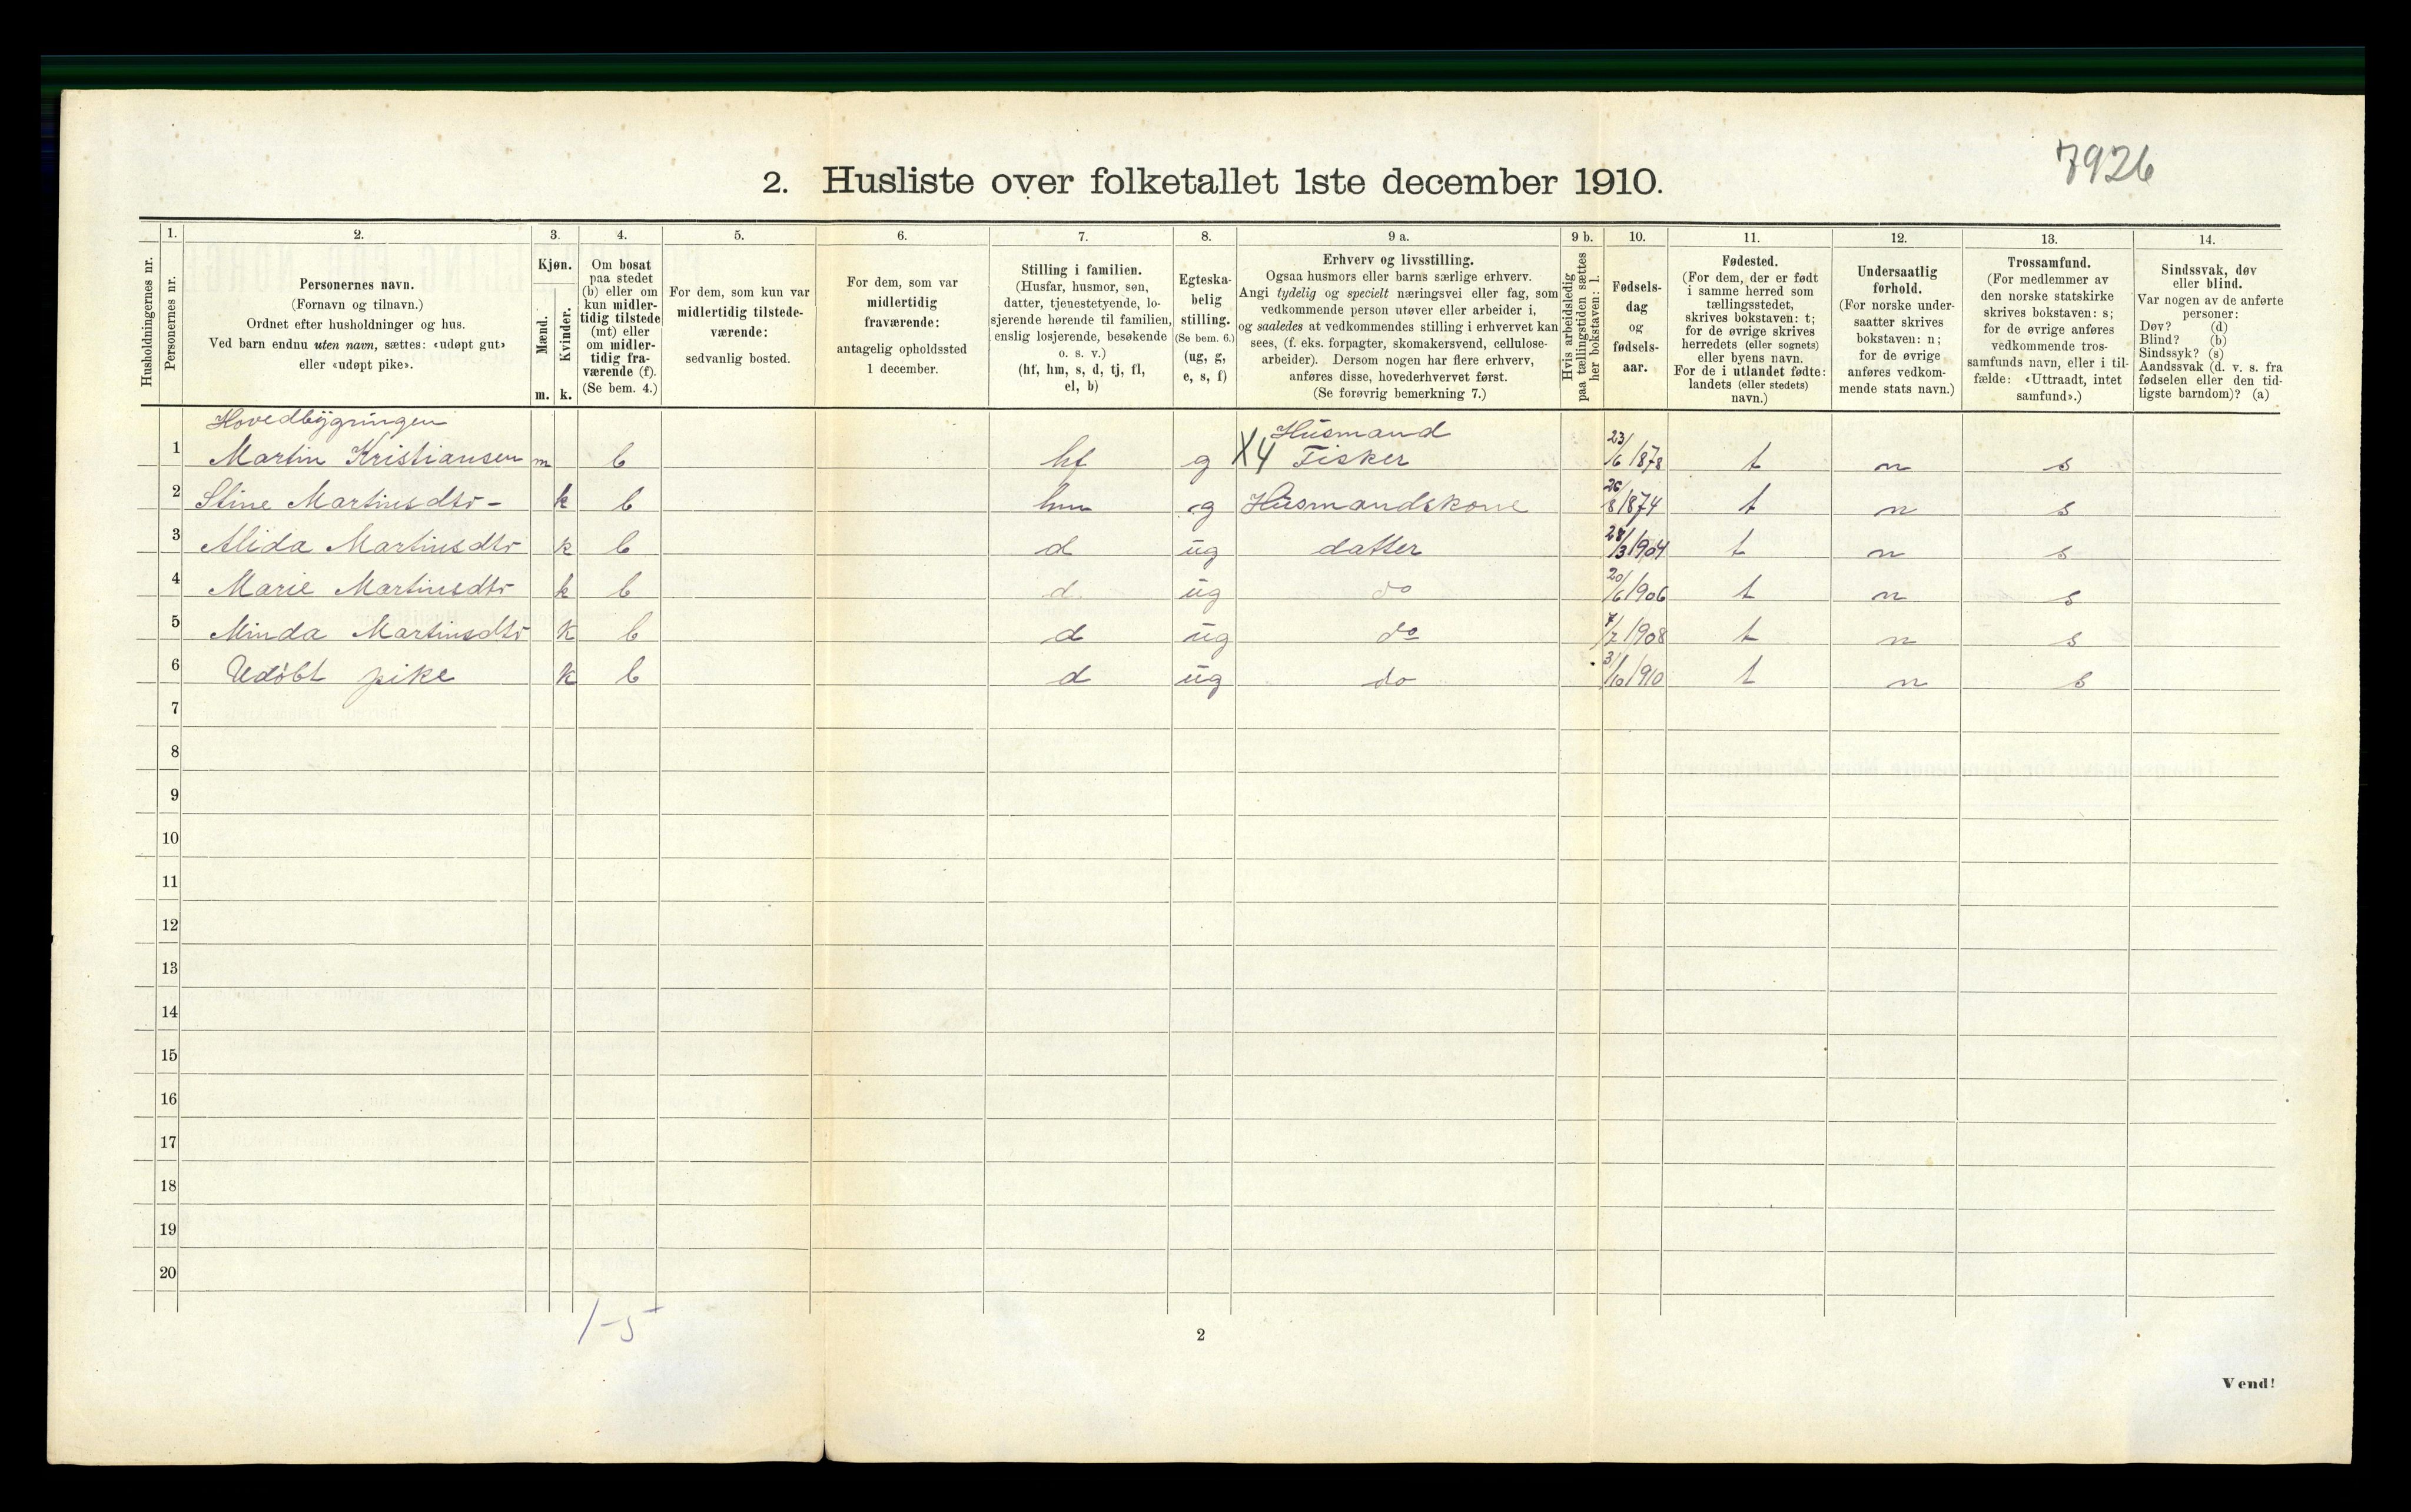 7926
2. Husliste over folketallet 1ste december 1910.
Husholdningernes nr.
1.
Personernes nr.
2.
Personernes navn.
(Fornavn og tilnavn.)
Ordnet efter husholdninger og hus.
Ved barn endnu uten navn, sættes: «udøpt gut»
eller «udøpt pike».
3.
Kjøn.
Mænd.
Kvinder.
m. k.
4.
Om bosat
paa stedet
(b) eller om
kun midler-
tidig tilstede
(mt) eller
om midler-
tidig fra-
værende (f).
(Se bem. 4.)
5.
For dem, som kun var
midlertidig tilstede-
værende:
sedvanlig bosted.
6.
For dem, som var
midlertidig
fraværende:
antagelig opholdssted
1 december.
7.
Stilling i familien.
(Husfar, husmor, søn,
datter, tjenestetyende, lo-
sjerende hørende til familien,
enslig losjerende, besøkende
o. s. v.)
(hf, hm, s, d, tj, fl,
el, b)
8.
Egteska-
belig
stilling.
(Se bem. 6.)
(ug, g,
e, s, f)
9 a.
Erhverv og livsstilling.
Ogsaa husmors eller barns særlige erhverv.
Angi tydelig og specielt næringsvei eller fag, som
vedkommende person utøver eller arbeider i,
og saaledes at vedkommendes stilling i erhvervet kan
sees, (f. eks. forpagter, skomakersvend, cellulose-
arbeider). Dersom nogen har flere erhverv,
anføres disse, hovederhvervet først.
(Se forøvrig bemerkning 7.)
9 b.
Hvis arbeidsledig
paa tællingstiden sættes
her bokstaven: l.
10.
Fødsels-
dag
og
fødsels-
aar.
11.
Fødested.
(For dem, der er født
i samme herred som
tællingsstedet,
skrives bokstaven: t;
for de øvrige skrives
herredets (eller sognets)
eller byens navn.
For de i utlandet fødte:
landets (eller stedets)
navn.)
12.
Undersaatlig
forhold.
(For norske under-
saatter skrives
bokstaven: n;
for de øvrige
anføres vedkom-
mende stats navn.)
13.
Trossamfund.
(For medlemmer av
den norske statskirke
skrives bokstaven: s;
for de øvrige anføres
vedkommende tros-
samfunds navn, eller i til-
fælde: «Uttraadt, intet
samfund».)
14.
Sindssvak, døv
eller blind.
Var nogen av de anførte
personer:
Døv? (d)
Blind? (b)
Sindssyk? (s)
Aandssvak (d. v. s. fra
fødselen eller den tid-
ligste barndom)? (a)
Hovedbygningen
Husmand
1 Martin Kristiansen m b hf g X4 Fisker 23/6 1878 t n s
2 Stine Martinsdtr- k b hm g Husmandskone 26/8 1874 t n s
3 Alida Martinsdtr k b d ug datter 28/3 1904 t n s
4 Marie Martinsdtr k b d. ug do 20/6 1906 t n s
5 Minda Martinsdtr k b d ug do 7/7 1908 t n s
6 Udøbt pike k b d ug do 3/10 1910 t n s
7
8
9
10
11
12
13
14
15
16
17
18
19
20
1-5
2
Vend!